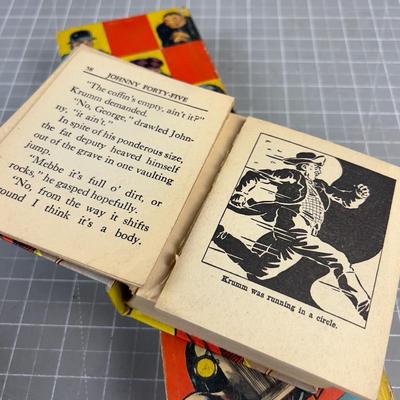 58 JOHNNY FORTY-FIVE
"The coffin's empty, ain't it?"
Krumm demanded.
"No, George," drawled John-
ny, "it ain't."
In spite of his ponderous size,
the fat deputy heaved himself
out of the grave in one vaulting
jump.
"Mebbe it's full o' dirt, or
rocks," he gasped hopefully.
"No, from the way it shifts
around I think it's a body.
Krumm was running in a circle.